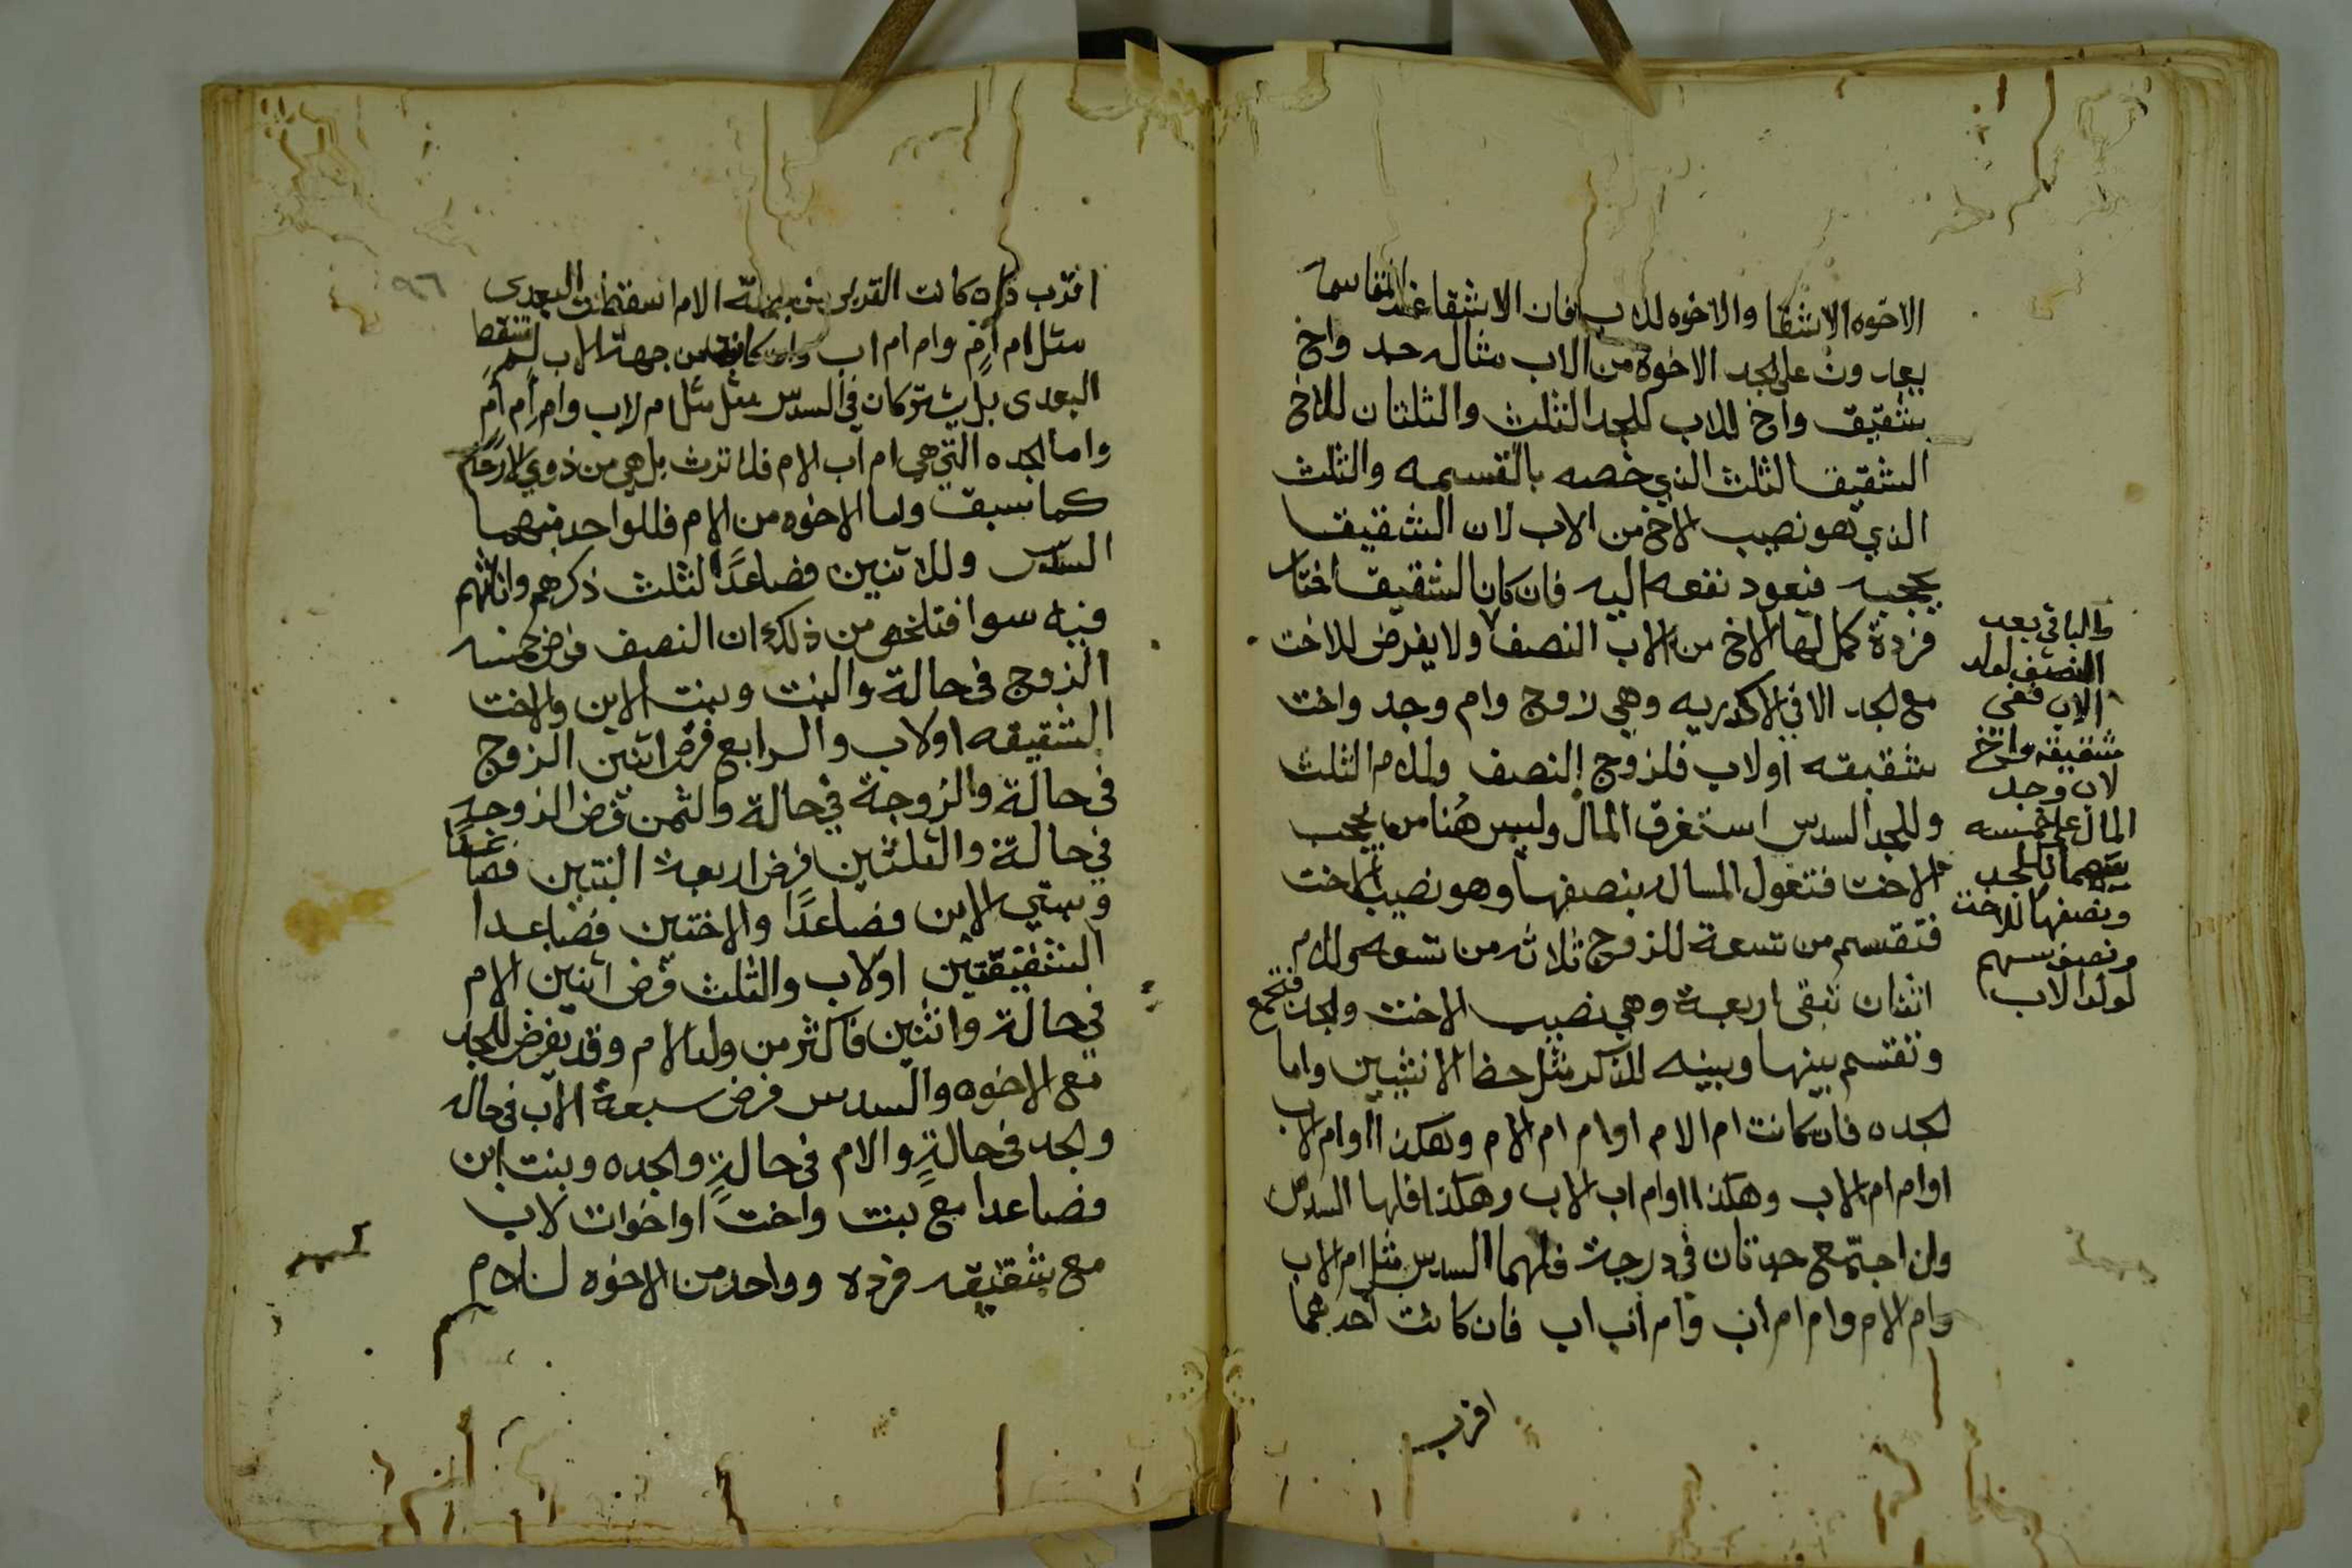 الاخوه الاشقا والاخوه للاب فان الاشقا عند المقاسمه
يعادون على الجد الاخوه من الاب مثاله جد واخ
شقيق واخ للاب للجد الثلث والثلثان للاخ
الشقيق الثلث الذي خصه بالقسيمه والثلث
الذي هو نصيب الاخ من الاب لان الشقيق
يحجبه فيعود نفعه اليه فان كان الشقيق اختا
فردة كمل لها الاخ من الاب النصف ولا يفرض للاخت
مع الجد الا في الاكدريه وهي زوج وام وجد واخت
شقيقه او لاب فللزوج النصف وللام الثلث
وللجد السدس استغرق المال وليس هُنا من يحجب
الاخت فتعول المساله بنصفها وهو نصيب الاخت
فتقسم من تسعة للزوج ثلاثه من تسعه وللام
اثنان تبقى اربعة وهي نصيب الاخت والجد فتجمع
وتقسم بينها وبينه للذكر مثل حظ الانثيين واما
الجده فان كانت ام الام او ام ام الام وهكذا او ام الاب
او ام ام الاب وهكذا او ام اب الاب وهكذا فلها السدس
وان اجتمع جدتان في درجة فلهما السدس مثل ام الاب
وام الام وام ام اب وام اب اب فان كانت احدهما
اقرب
والباقي بعد
النصف لولد
الاب ففي
شقيقه واخ
لاب وجد
المال على خمسه
سهمان للجد
ونصفها للاخت
ونصف سهم
لولد الاب
٩٦
اقرب فان كانت القربى من جهة الام اسقطت البعدى
مثل ام ام وام ام اب وان كانت من جهة الاب لم تسقط
البعدى بل يشتركان في السدس مثل مثل ام لاب وام ام ام
واما الجده التي هي ام اب الام فلا ترث بل هي من ذوي الارحام
كما سبق واما الاخوه من الام فللواحد منهما
السدس وللاثنين فصاعدًا الثلث ذكرهم وانثاهم
فيه سوا فتلخص من ذلك ان النصف فرض خمسه
الزوج في حالة والبنت وبنت الابن والاخت
الشقيقه او لاب والرابع فرض اثنين الزوج
في حالة والزوجة في حالة والثمن فرض الزوجه
في حالة والثلثين فرض اربعة البنتين فصاعدًا
وبنتي الابن فصاعدًا والاختين فصاعدا
الشقيقتين او لاب والثلث فرض اثنين الام
في حالة واثنين فاكثر من ولد الام وقد يفرض للجد
مع الاخوه والسدس فرض سبعة الاب في حاله
والجد في حالةٍ والام في حالةٍ والجده وبنت ابن
فصاعدا مع بنت واخت او اخوات لاب
مع شقيقه فرده وواحد من الاخوه للام